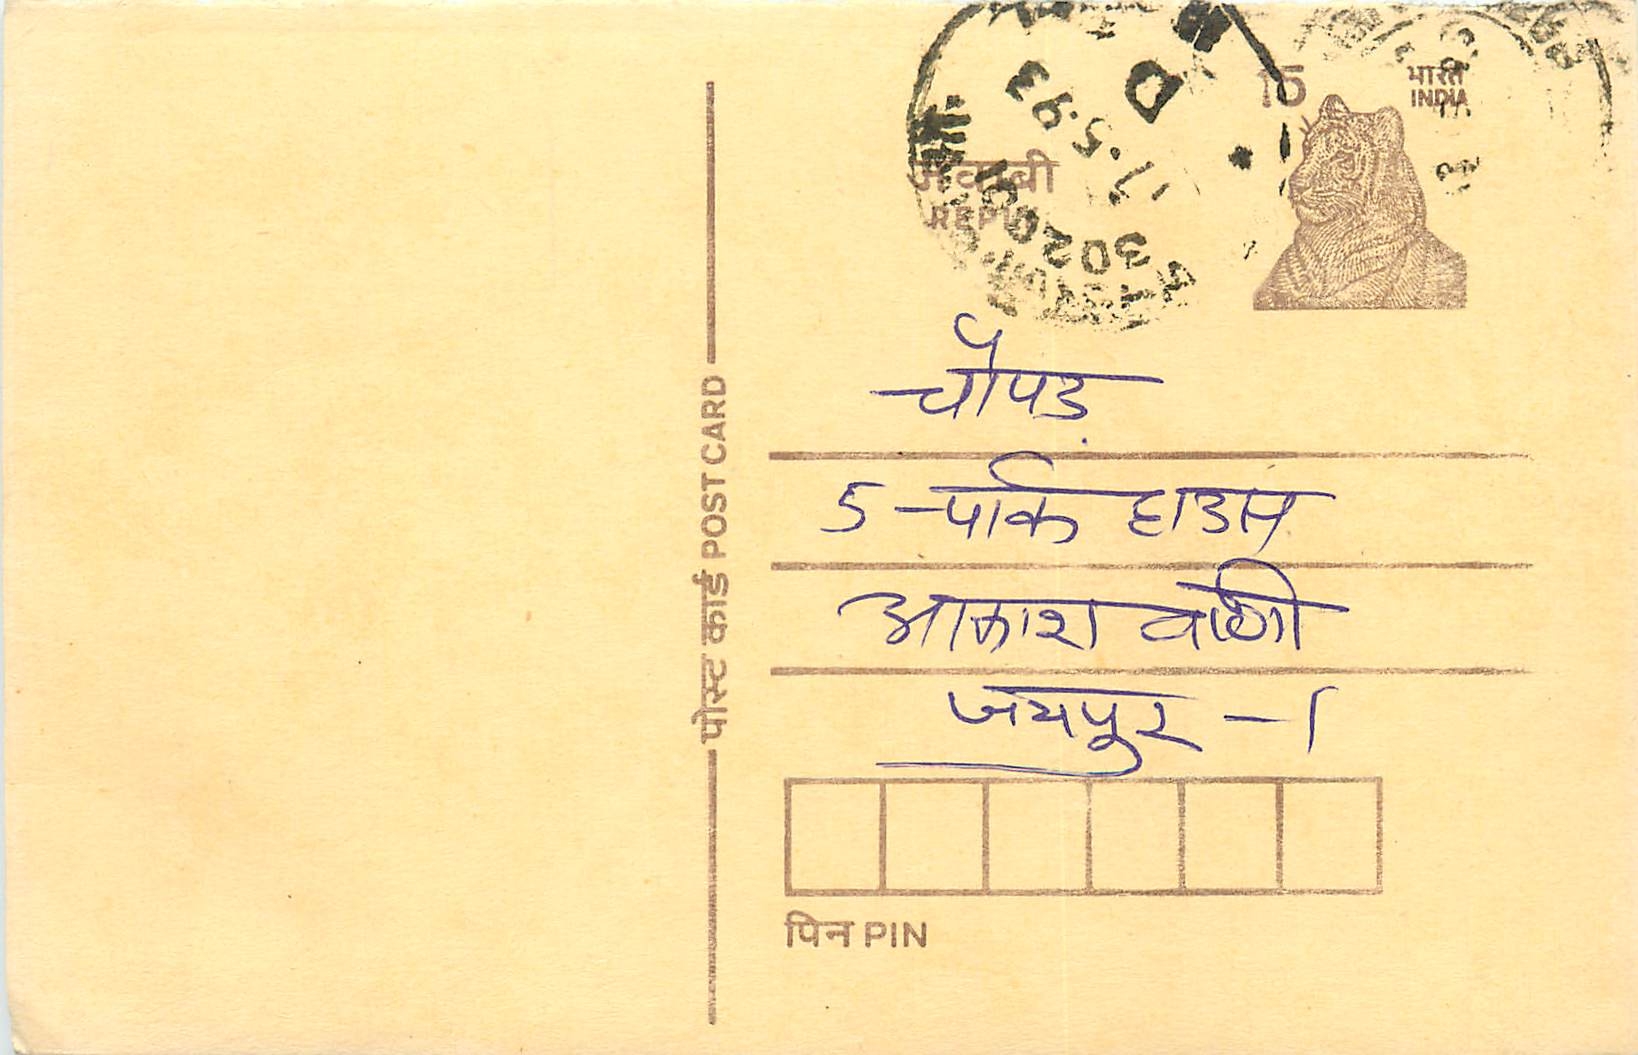 15
भारत
INDIA
जवाबी
REPLY
D
17.5.93
302001
चौपड़
5-पार्क हाउस
आकाशवाणी
जयपुर-1
पोस्ट कार्ड POST CARD
पिन PIN